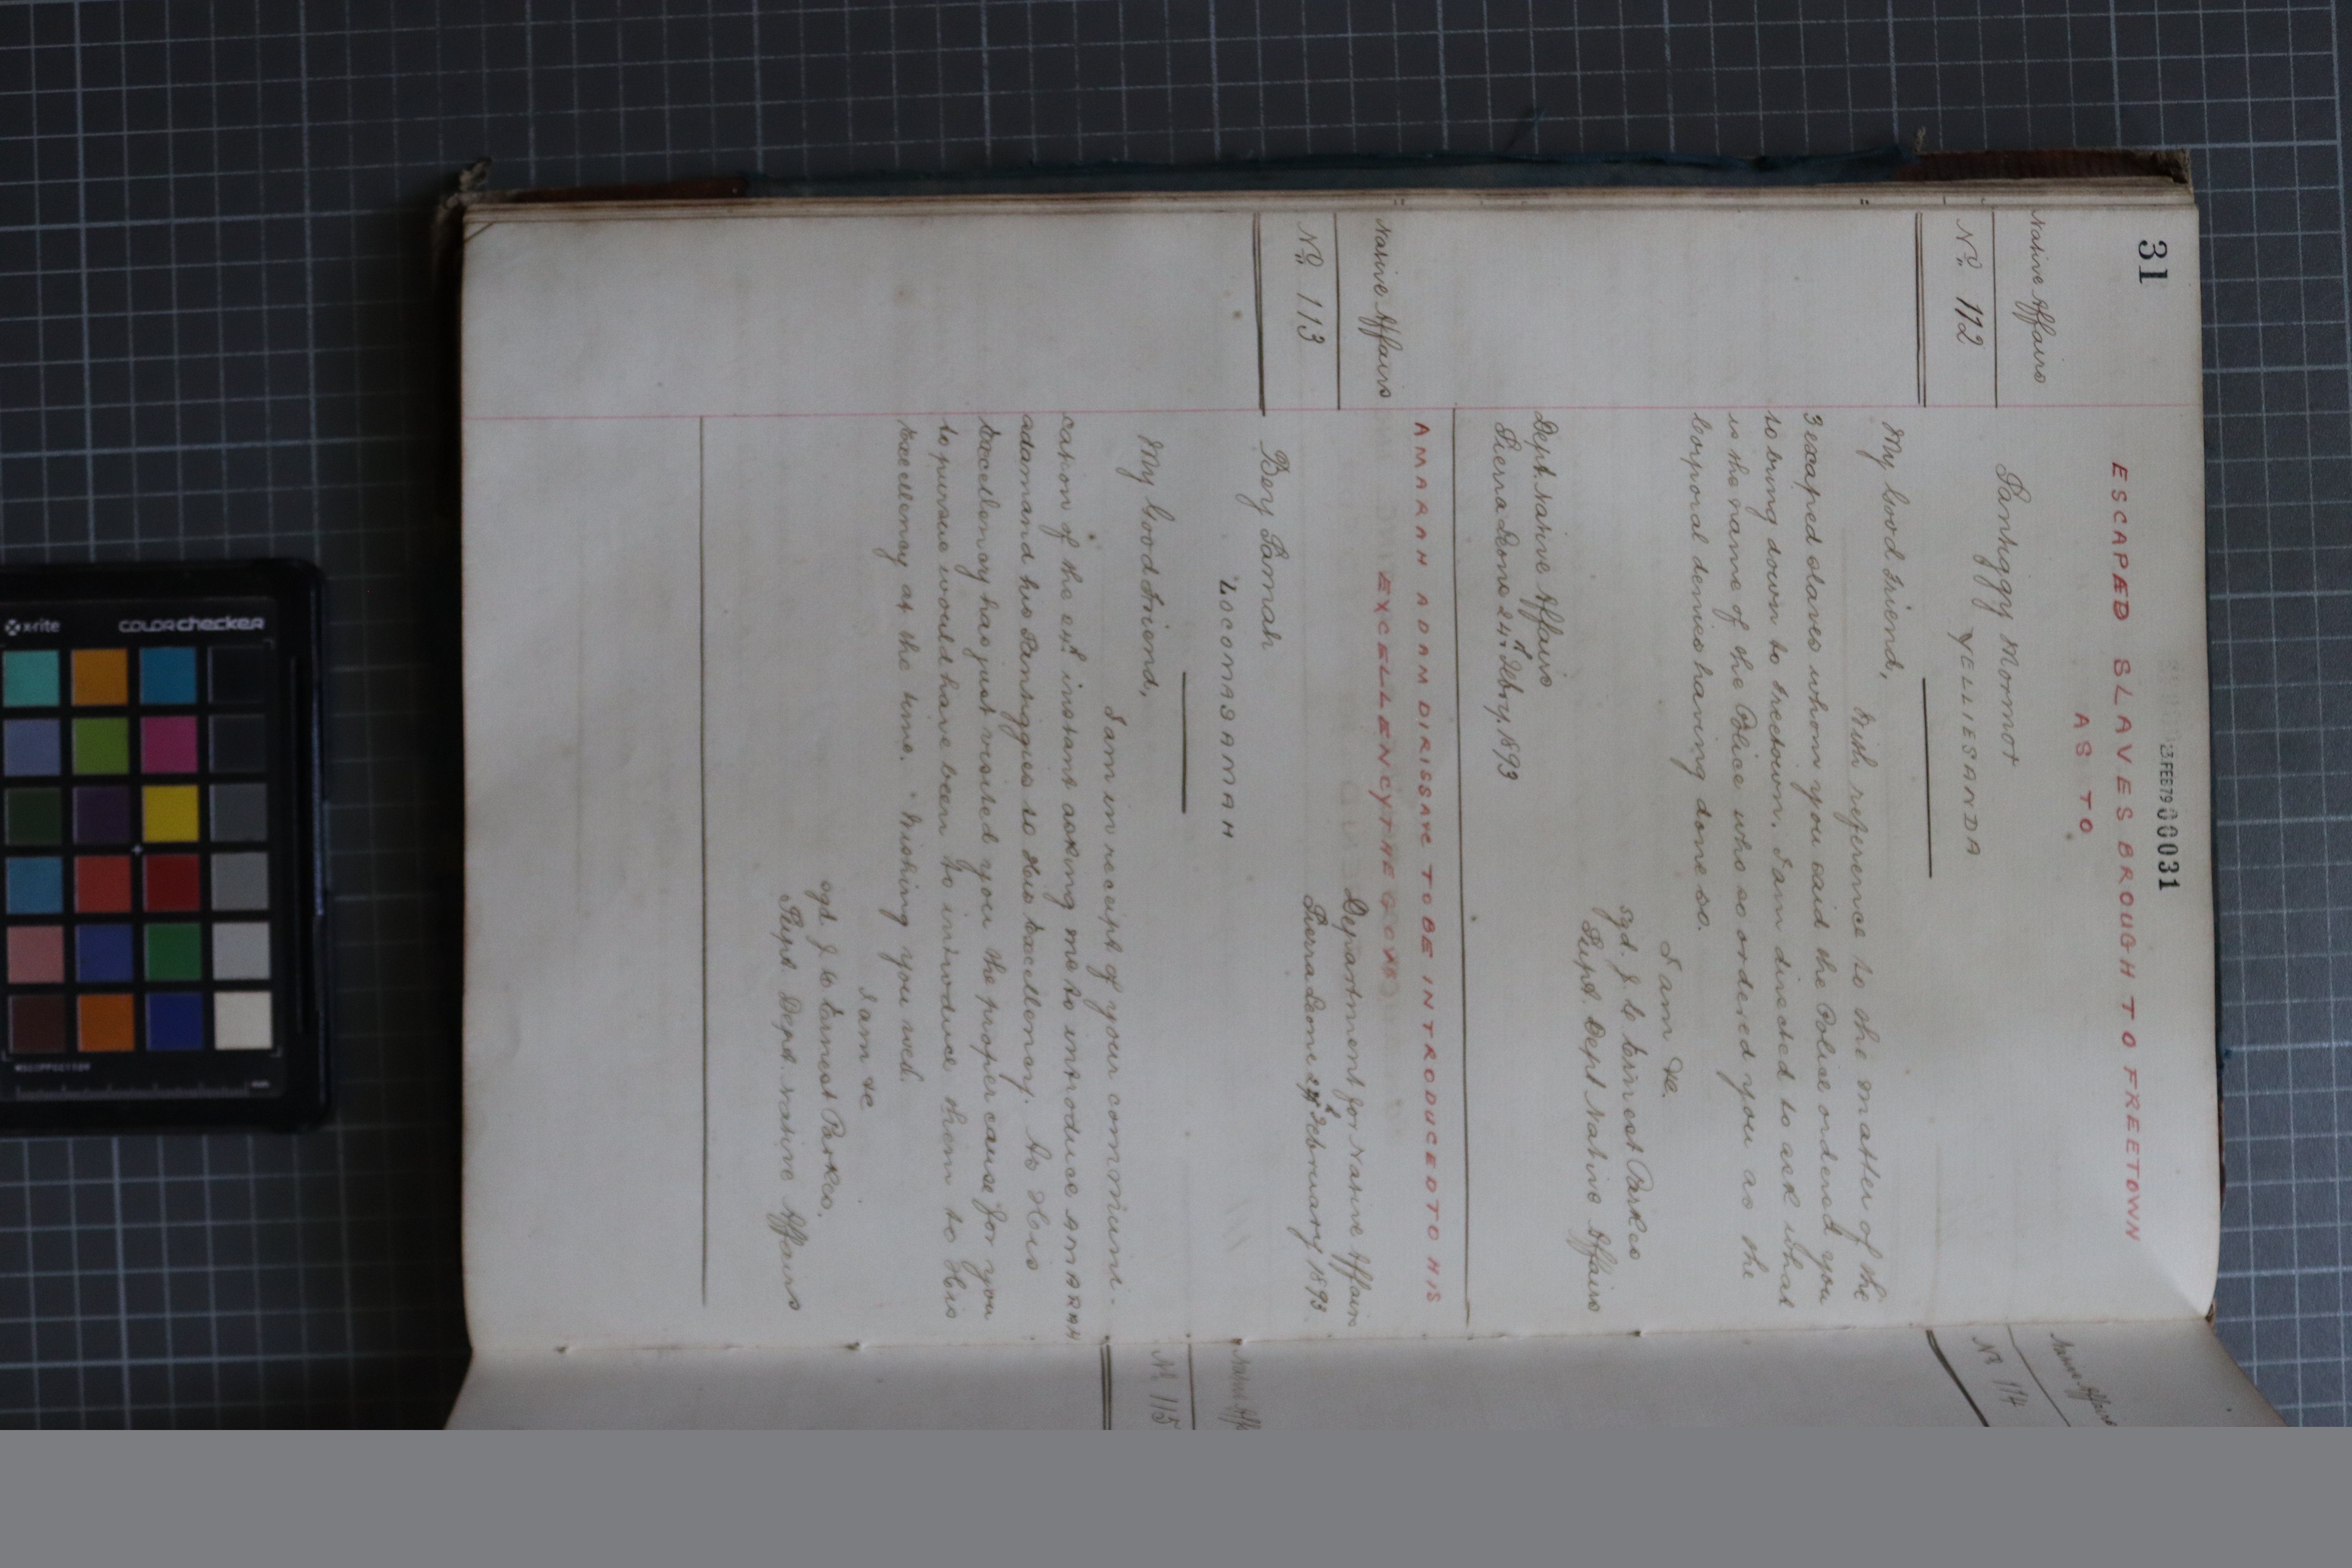 31
23 FEB 79 000031
ESCAPED SLAVES BROUGH TO FREETOWN
AS TO
Native Affairs
No 112
Santiggy Mormot
YELLIESANDA
My Good Friend,
With reference to the matter of the
3 escaped slaves whom you said the Police ordered you
to bring down to Freetown. I am directed to ask what
is the name of the Police who so ordered you as the
Corporal denies having done so.
I am &c.
sgd. J. C. Ernest Parkes
Supt. Dept Native Affairs
Dept. Native Affairs
Sierra Leone 24th Febry. 1893
AMARAH ADAM DIRISSAYE TO BE INTRODUCED TO HIS
EXCELLENCY THE GOVR
Native Affairs
No 113
Department for Native Affairs
Sierra Leone February 1893.
Bey Samah
LOCOMASAMAH
My Good Friend,
I am in receipt of your communi-
cation of the instant asking me to introduce AMARAH
adam and his Santiggies to His Excellency. As His
Excellency has just visited you the proper cause for you
to pursue would have been to introduce them to His
Excellency at the time. Wishing you well.
I am &c
sgd. J. C. Ernest Parkes.
Supt. Dept. Native Affairs
Native Affairs
No 114
Native Aff
No 115